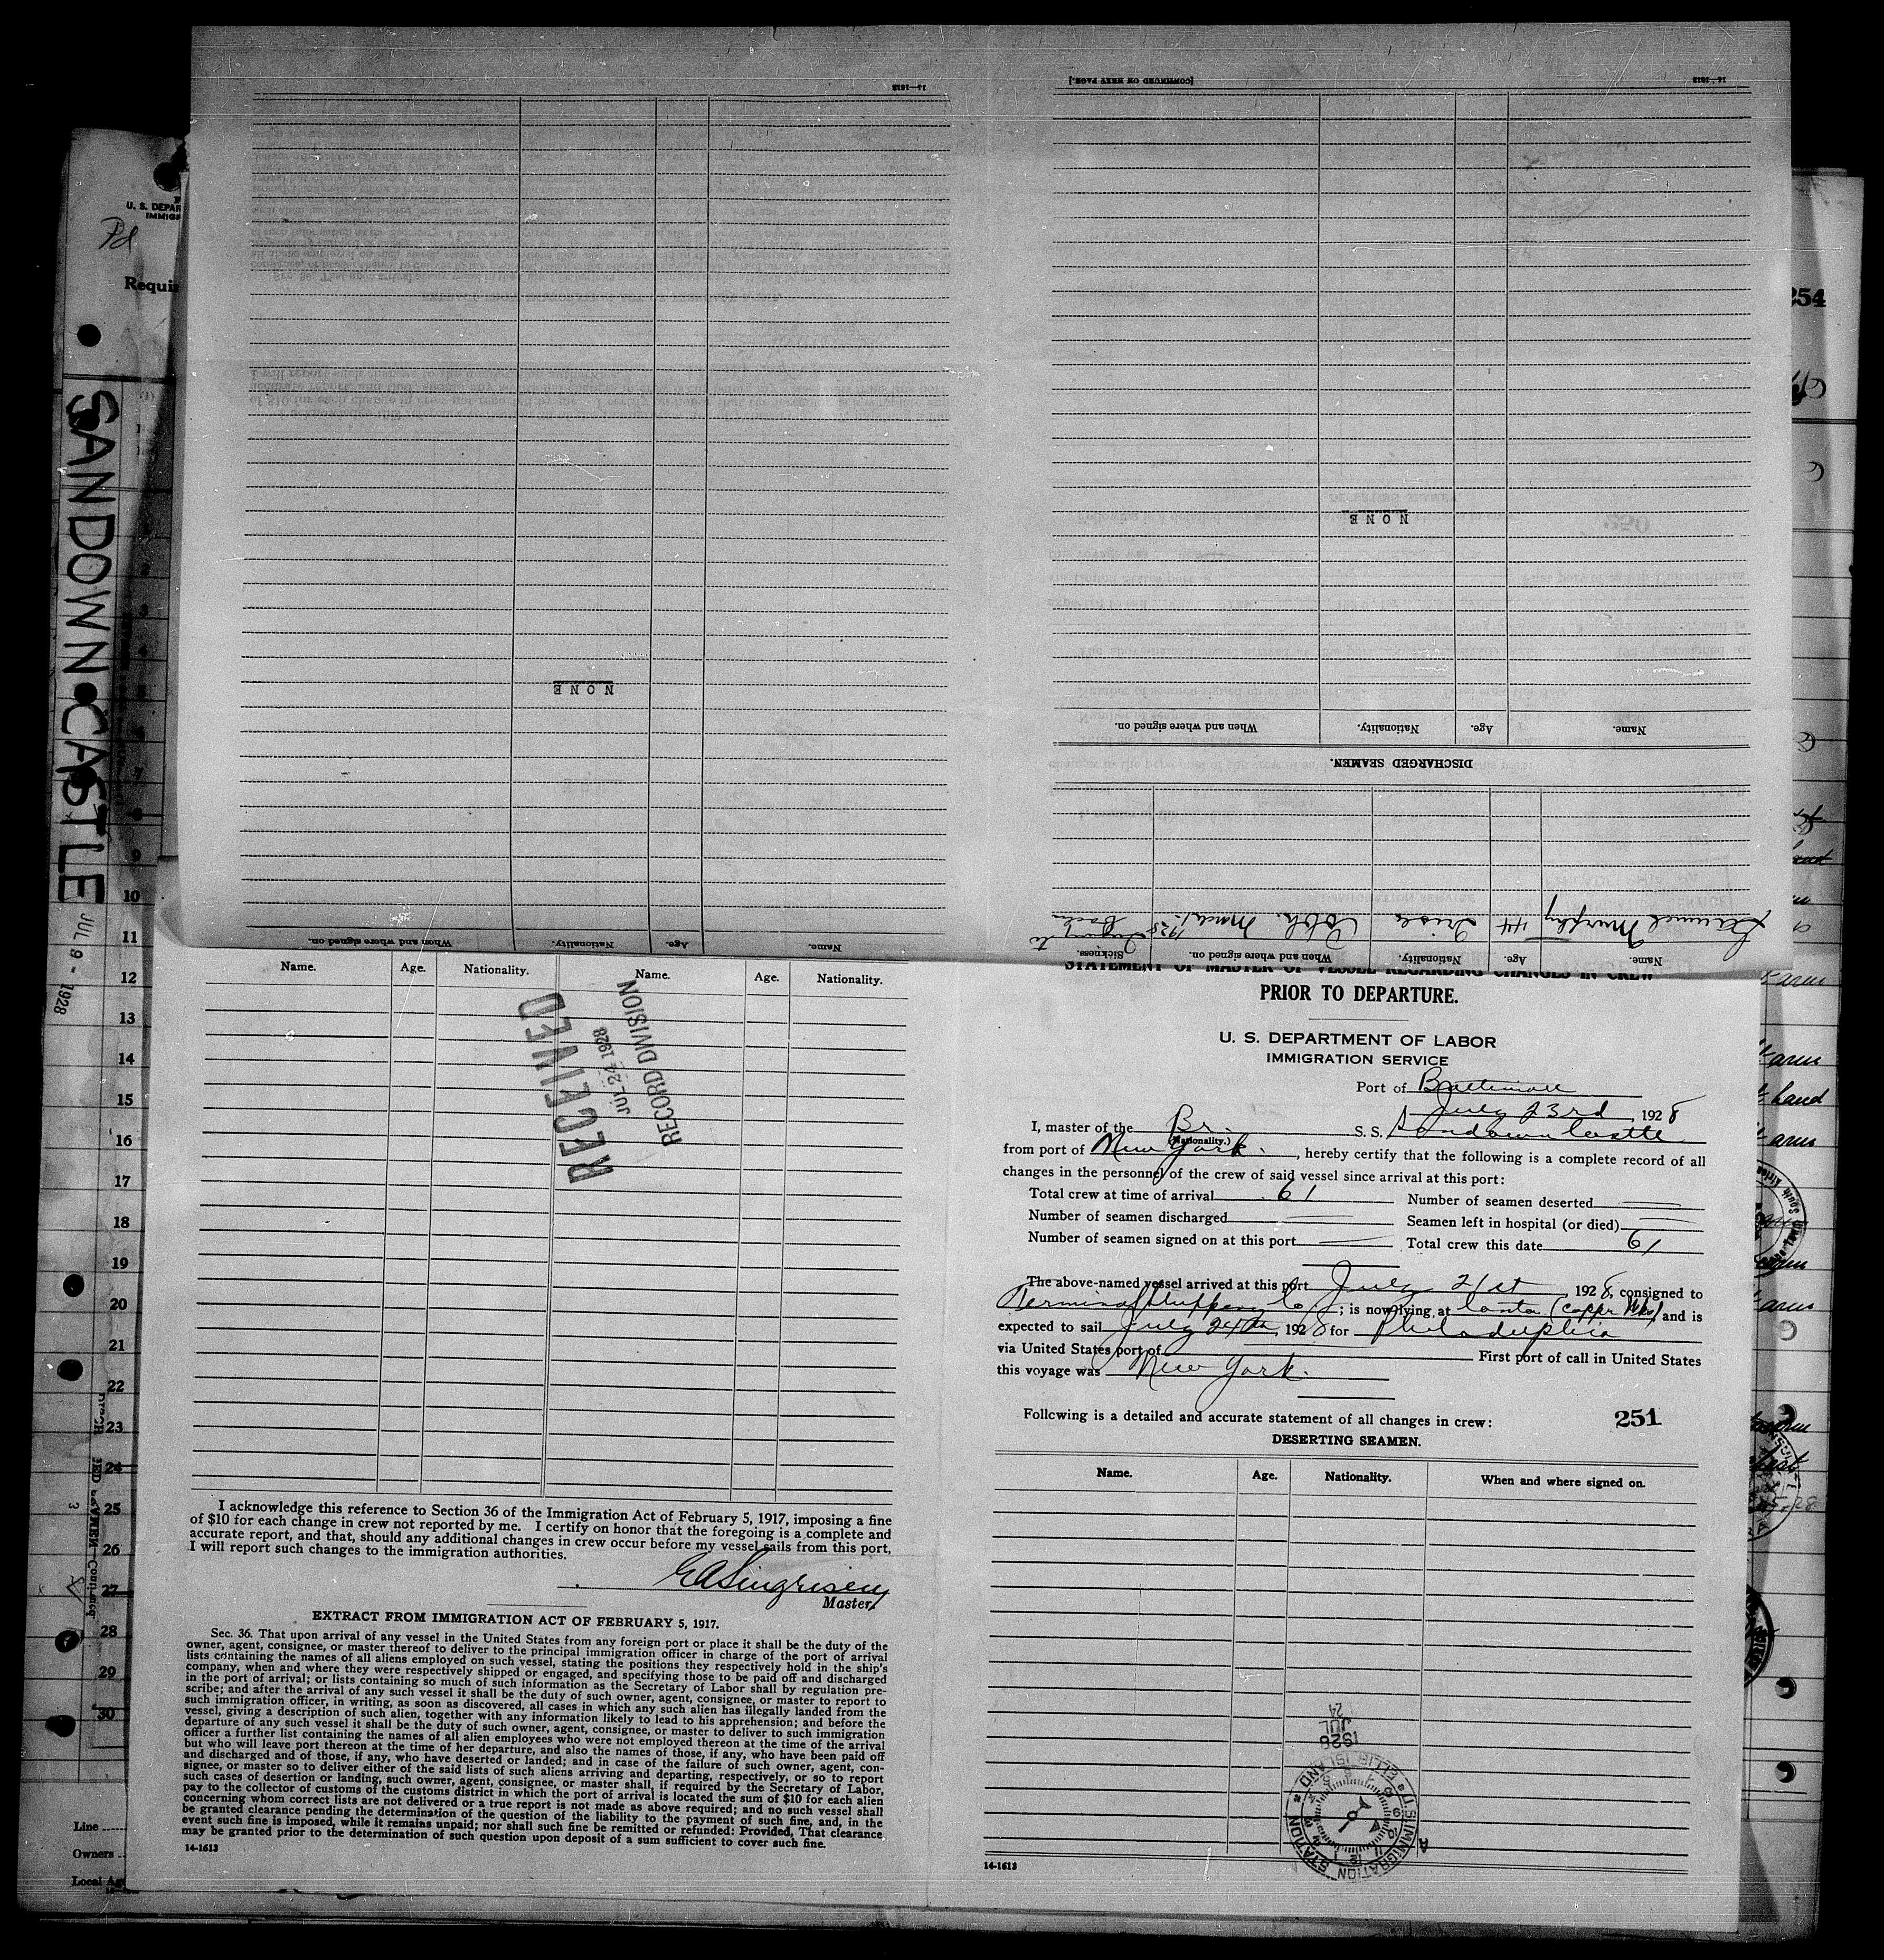 14—1613
[CONTINUED ON NEXT PAGE.]
14—1613
U. S. DEPAR
IMMIG
Pd
Requir
254
SANDOWN CASTLE
JUL 9 - 1928
NONE
When and where signed on.
Nationality.
Age.
Name.
NONE
When and where signed on.
Nationality.
Age.
Name.
DISCHARGED SEAMEN.
Murphy 44 Irish Cobh. March 1928
Sickness.
When and where signed on.
Nationality.
Age.
Name.
9
10
11
12
13
14
15
16
17
18
19
20
21
22
23
24
25
26
27
28
29
30
Line
Owners
Local Ag
Name. Age. Nationality. Name. Age. Nationality.
RECEIVED
JUL 24 1928
RECORD DIVISION
I acknowledge this reference to Section 36 of the Immigration Act of February 5, 1917, imposing a fine
of $10 for each change in crew not reported by me. I certify on honor that the foregoing is a complete and
accurate report, and that, should any additional changes in crew occur before my vessel sails from this port,
I will report such changes to the immigration authorities.
Master
EXTRACT FROM IMMIGRATION ACT OF FEBRUARY 5, 1917.
Sec. 36. That upon arrival of any vessel in the United States from any foreign port or place it shall be the duty of the
owner, agent, consignee, or master thereof to deliver to the principal immigration officer in charge of the port of arrival
lists containing the names of all aliens employed on such vessel, stating the positions they respectively hold in the ship's
company, when and where they were respectively shipped or engaged, and specifying those to be paid off and discharged
in the port of arrival; or lists containing so much of such information as the Secretary of Labor shall by regulation pre-
scribe; and after the arrival of any such vessel it shall be the duty of such owner, agent, consignee, or master to report to
such immigration officer, in writing, as soon as discovered, all cases in which any such alien has illegally landed from the
vessel, giving a description of such alien, together with any information likely to lead to his apprehension; and before the
departure of any such vessel it shall be the duty of such owner, agent, consignee, or master to deliver to such immigration
officer a further list containing the names of all alien employees who were not employed thereon at the time of the arrival
but who will leave port thereon at the time of her departure, and also the names of those, if any, who have been paid off
and discharged and of those, if any, who have deserted or landed; and in case of the failure of such owner, agent, con-
signee, or master so to deliver either of the said lists of such aliens arriving and departing, respectively, or so to report
such cases of desertion or landing, such owner, agent, consignee, or master shall, if required by the Secretary of Labor,
pay to the collector of customs of the customs district in which the port of arrival is located the sum of $10 for each alien
concerning whom correct lists are not delivered or a true report is not made as above required; and no such vessel shall
be granted clearance pending the determination of the question of the liability to the payment of such fine, and, in the
event such fine is imposed, while it remains unpaid; nor shall such fine be remitted or refunded: Provided, That clearance
may be granted prior to the determination of such question upon deposit of a sum sufficient to cover such fine.
14-1613
STATEMENT OF MASTER OF VESSEL REGARDING CHANGES IN CREW
PRIOR TO DEPARTURE.
U. S. DEPARTMENT OF LABOR
IMMIGRATION SERVICE
Port of Baltimore
July 23rd, 1928
I, master of the Br. S. S. Sandown Castle
(Nationality.)
from port of New York., hereby certify that the following is a complete record of all
changes in the personnel of the crew of said vessel since arrival at this port:
Total crew at time of arrival 61 Number of seamen deserted
Number of seamen discharged Seamen left in hospital (or died)
Number of seamen signed on at this port Total crew this date 61
The above-named vessel arrived at this port July 21st 1928, consigned to
Terminal Shipping Co; is now lying at Canton (Copper Wks) and is
expected to sail July 24th, 1928 for Philadelphia
via United States port of First port of call in United States
this voyage was New York.
Following is a detailed and accurate statement of all changes in crew: 251
DESERTING SEAMEN.
Name. Age. Nationality. When and where signed on.
JUL 24
IMMIGRATION STATION ELLIS ISLAND
14-1613